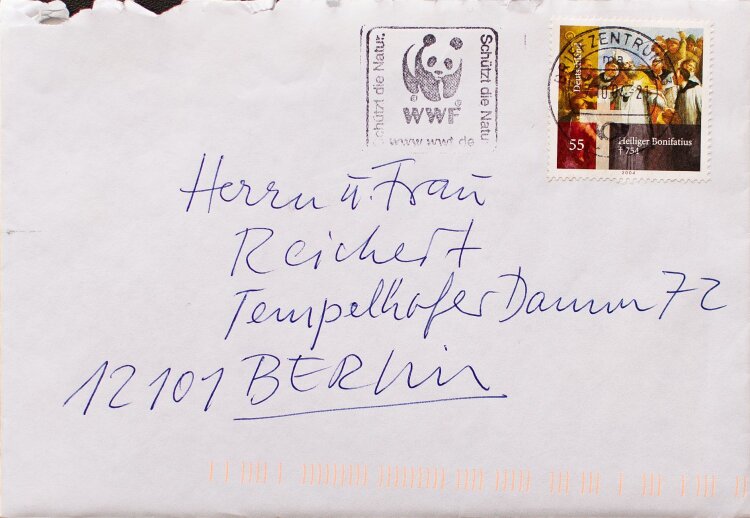 Schützt die Natur.
WWF
Schützt die Natur
www.wwf.de
BRIEFZENTRUM
Deutschland
55
Heiliger Bonifatius
† 754
2004
Herrn u. Frau
Reichert
Tempelhofer Damm 72
12101 BERLin